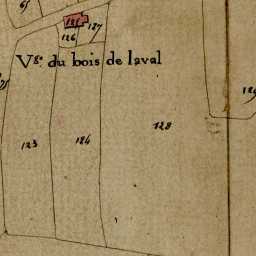 65
125
126
127
Vge. du bois de laval
123
124
128